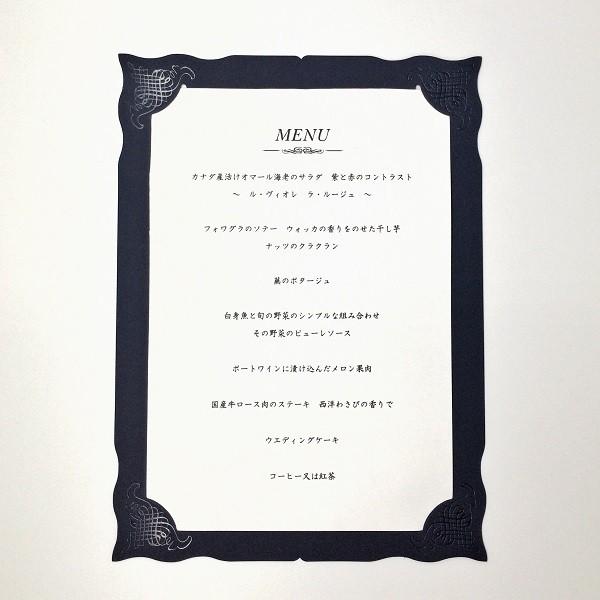 MENU
カナダ産活けオマール海老のサラダ　紫と赤のコントラスト
～　ル・ヴィオレ　ラ・ルージュ　～
フォワグラのソテー　ウォッカの香りをのせた干し芋
ナッツのクラクラン
蕪のポタージュ
白身魚と旬の野菜のシンプルな組み合わせ
その野菜のピューレソース
ポートワインに漬け込んだメロン果肉
国産牛ロース肉のステーキ　西洋わさびの香りで
ウエディングケーキ
コーヒー又は紅茶